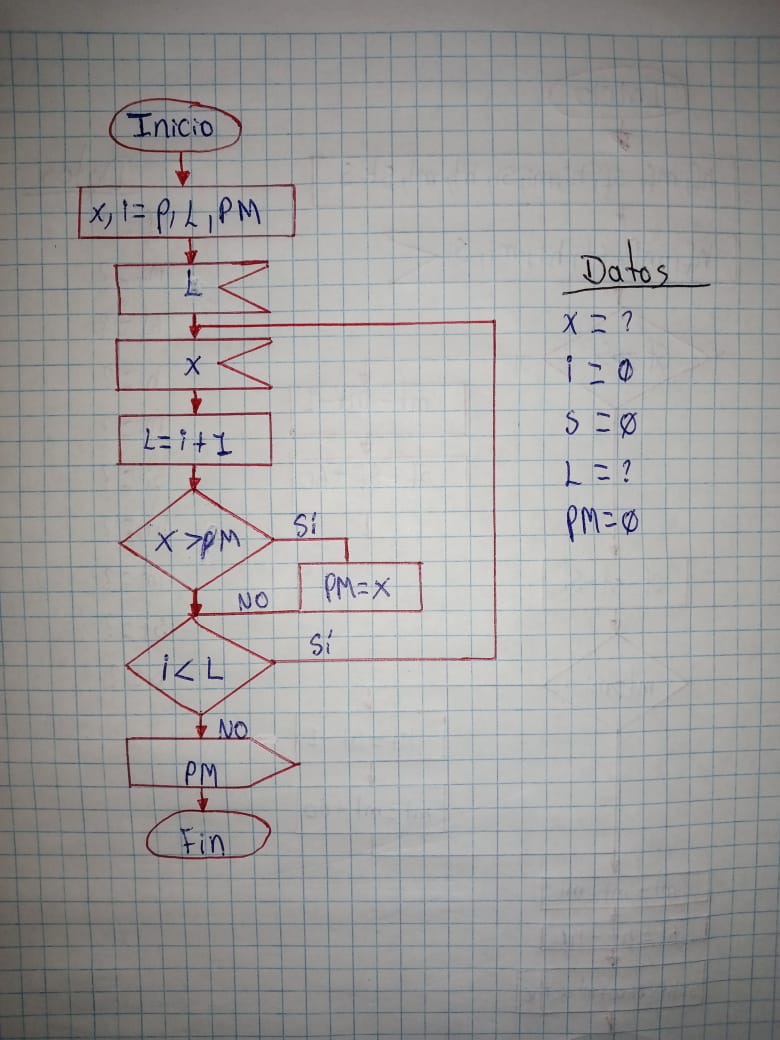 Inicio
x, i = p, L, PM
L
x
L = i + 1
x > PM
Sí
PM = x
NO
i < L
Sí
NO
PM
Fin
Datos
x = ?
i = ø
S = ø
L = ?
PM = ø